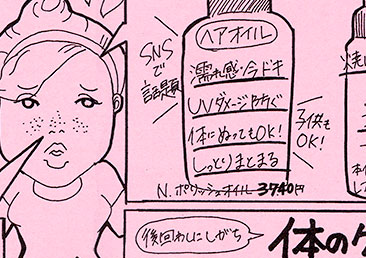 SNS
で
話題
ヘアオイル
濡れ感・今ドキ
UVダメージ防ぐ
体にぬってもOK!
しっとりまとまる
子供も
OK!
N. ポリッシュオイル 3740円
後回わしにしがち
体の